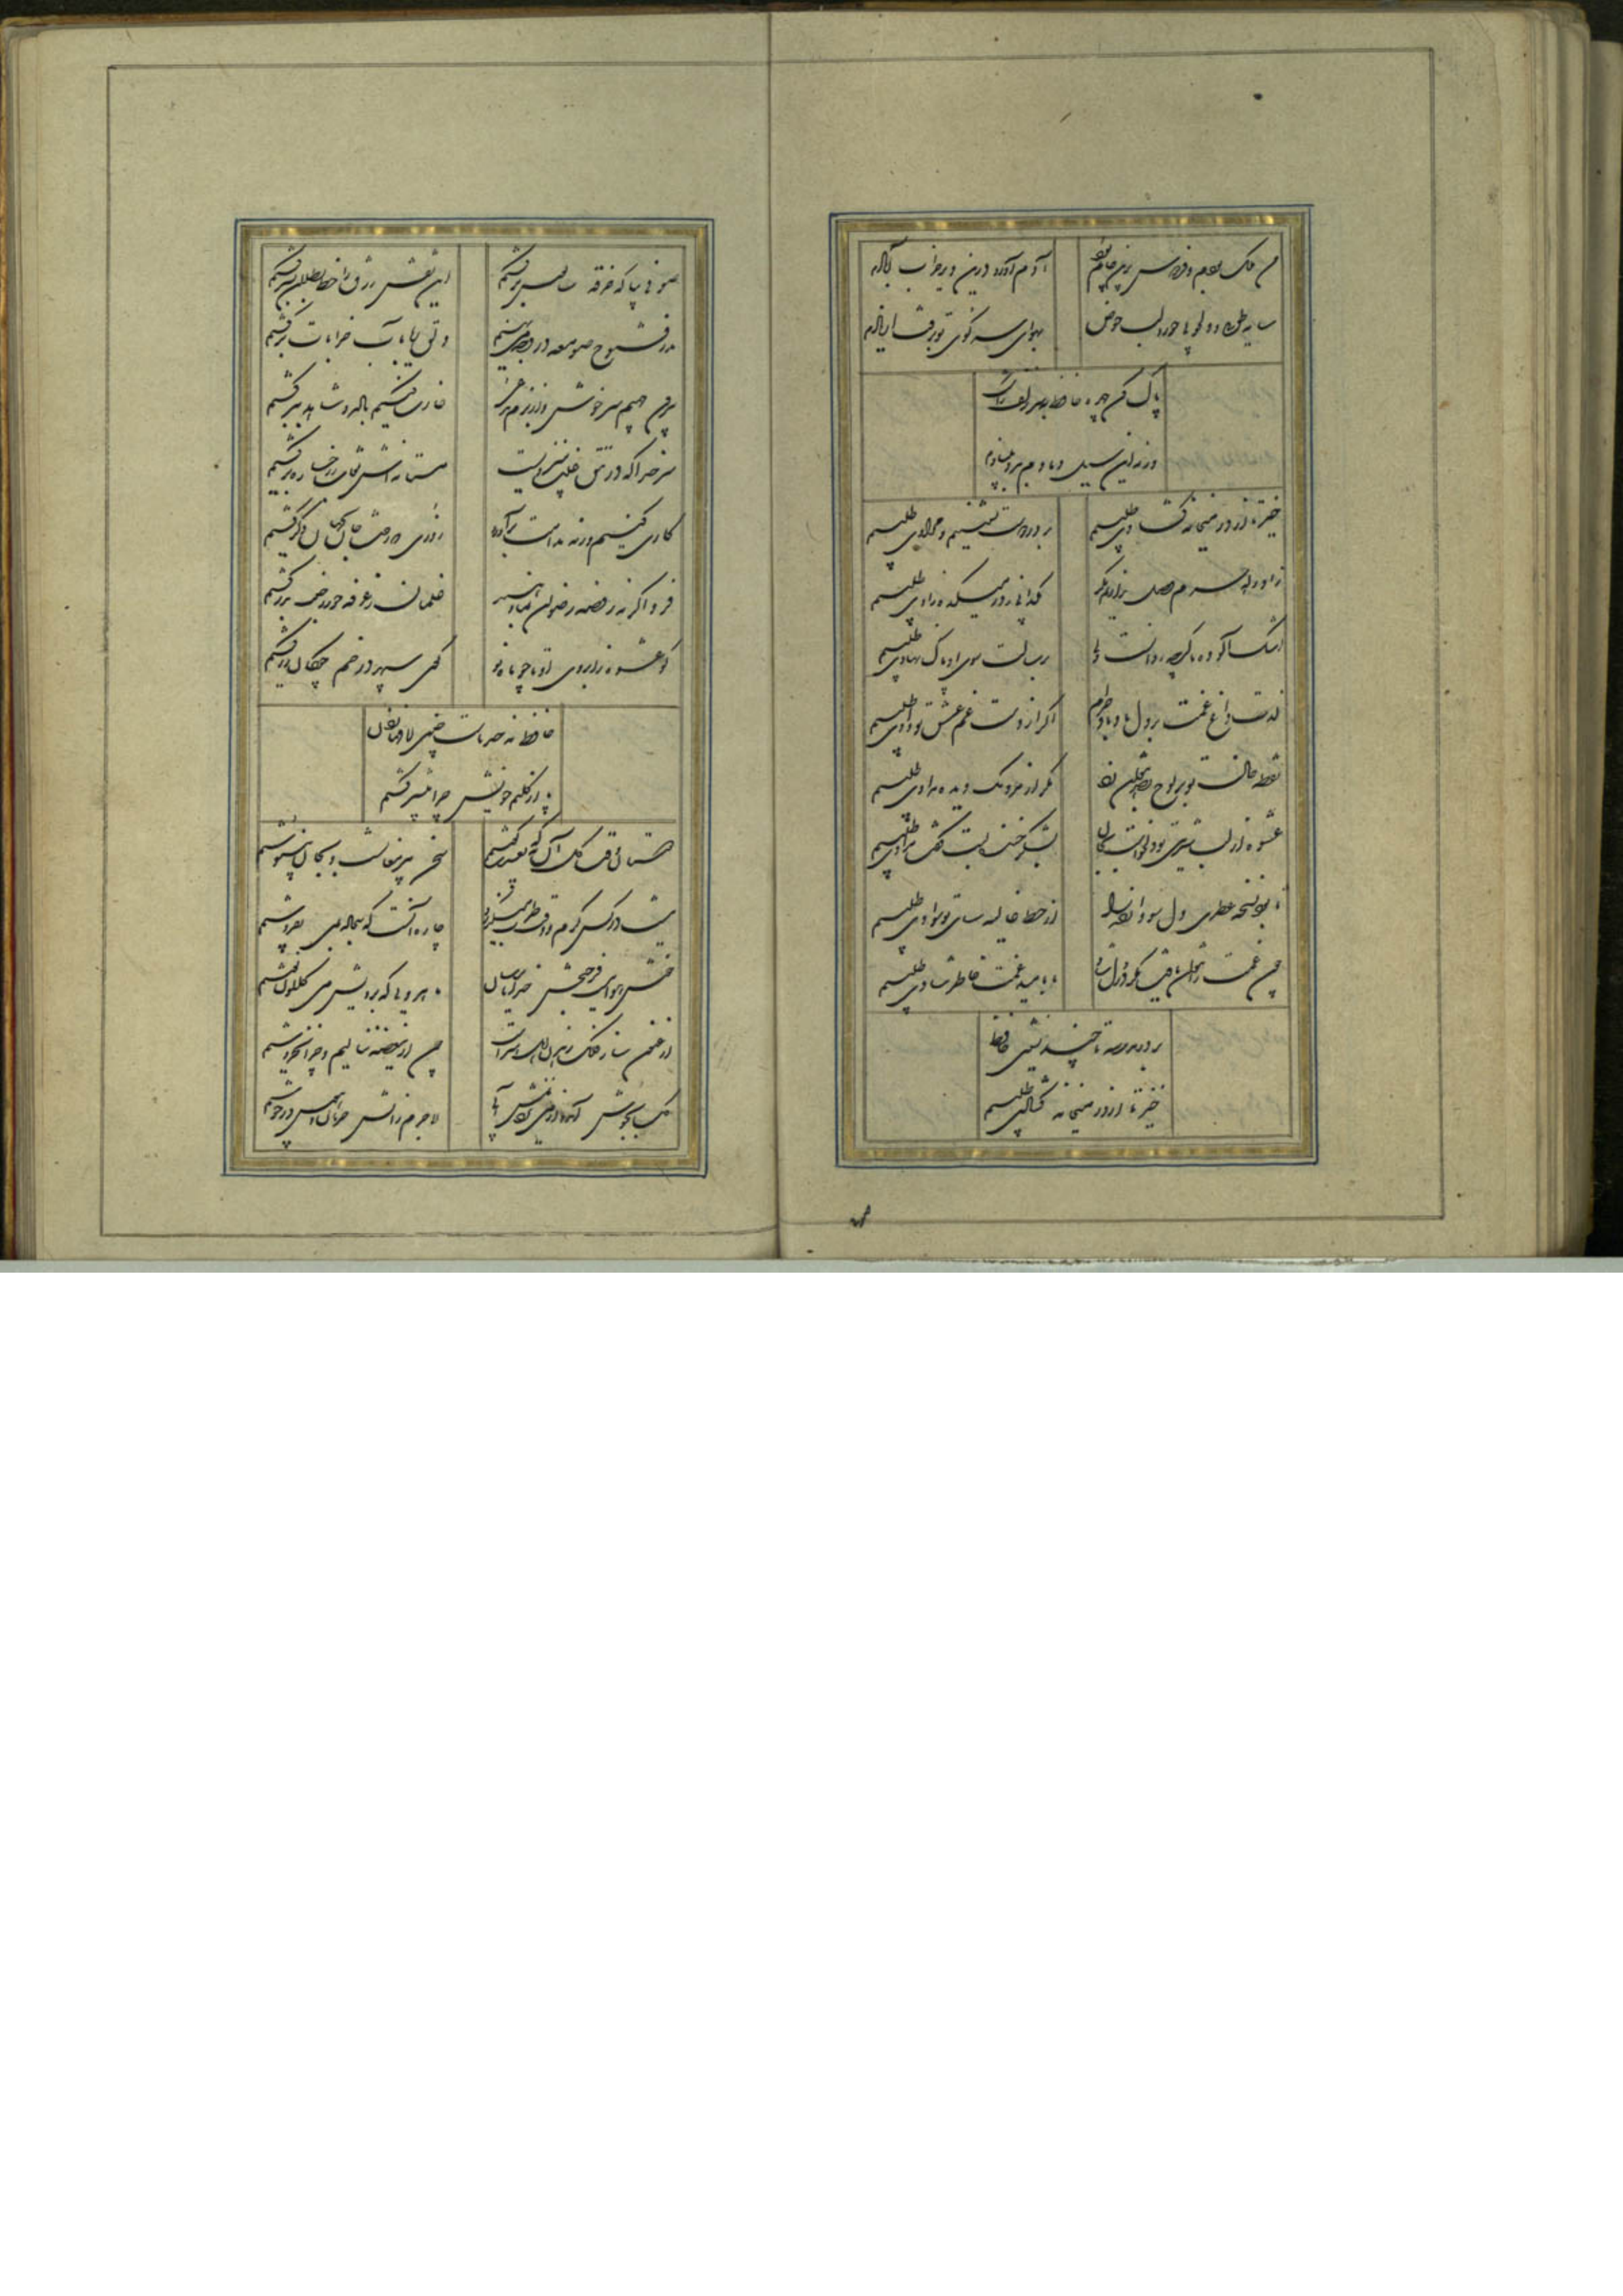 من ملک بودم و فردوس برین جایم بود
آدم آورد درین دیر خراب آبادم
سایه طوبی و دلجویی حور و لب حوض
بهوای سر کوی تو برفت از یادم
پاک کن چهره حافظ بسر زلف ز اشک
ورنه این سیل دمادم ببرد بنیادم
خیز تا از در میخانه گشادی طلبیم
بر در دوست نشینیم و مرادی طلبیم
زاد راه حرم وصل نداریم مگر
بگدایی ز در میکده زادی طلبیم
اشک آلوده ما گرچه روانست ولی
برسالت سوی او پاک نهادی طلبیم
لذت داغ غمت بر دل ما باد حرام
اگر از دست غم عشق تو دادی طلبیم
نقطه خال تو بر لوح بصر نتوان زد
مگر از مردمک دیده مدادی طلبیم
عشوه از لب شیرین تو دل خواست بجان
بشکر خنده لبت گفت مرادی طلبیم
تا بود نسخه عطری دل سودا زده را
از خط غالیه سای تو سوادی طلبیم
چون غمت را نتوان یافت مگر در دل شاد
ما بامید غمت خاطر شادی طلبیم
بر در مدرسه تا چند نشینی حافظ
خیز تا از در میخانه گشادی طلبیم
صوفی بیا که خرقه سالوس برکشیم
این نقش زرق را خط بطلان بسر کشیم
نذر و فتوح صومعه در وجه می نهیم
دلق ریا بآب خرابات برکشیم
بیرون جهیم سرخوش و از بزم
غارت کنیم باده و شاهد ببر کشیم
سر خدا که در تتق غیب منزویست
مستانه اش نقاب ز رخساره برکشیم
کاری کنیم ورنه خجالت برآورد
روزی که رخت جان بجهان دگر کشیم
فردا اگر نه روضه رضوان بما دهند
غلمان ز غرفه حور ز جنت بدر کشیم
کو عشوه ز ابروی او تا چو ماه نو
گوی سپهر در خم چوگان زر کشیم
حافظ نه حد ماست چنین لافها زدن
پا از گلیم خویش چرا بیشتر کشیم
دوستان وقت گل آن به که بعشرت کوشیم
سخن پیر مغانست و بجان بنیوشیم
نیست در کس کرم و وقت طرب میگذرد
چاره آنست که سجاده بمی بفروشیم
خوش هواییست فرح بخش خدایا بفرست
ماه رویی که برویش می گلگون نوشیم
ارغنون ساز فلک رهزن اهل هنرست
چون ازین غصه ننالیم و چرا نخروشیم
گل بجوش آمد و از می نزدیمش آبی
لاجرم ز آتش حرمان و هوس در جوشیم